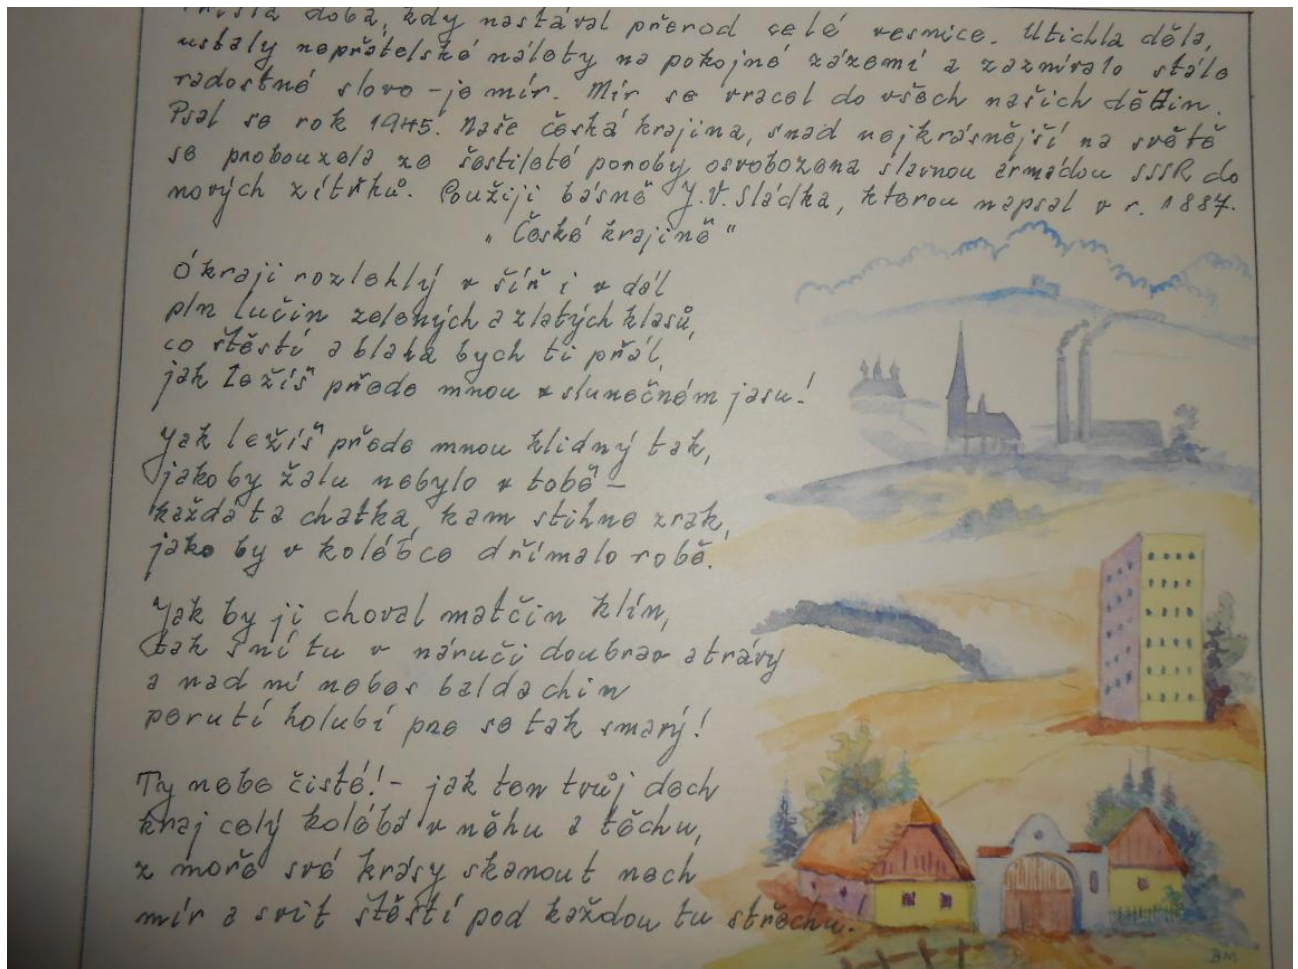 doba, kdy nastával přerod celé vesnice. Utichla děla,
ustaly nepřátelské nálety na pokojné zázemí a zaznívalo stále
radostné slovo - je mír. Mír se vracel do všech našich dědin.
Psal se rok 1945. Naše česká krajina, snad nejkrásnější na světě
se probouzela ze šestileté poroby osvobozena slavnou armádou SSSR do
nových zítřků. Použiji básně J.V. Sládka, kterou napsal v r. 1887.
"České krajině"
Ó kraji rozlehlý v šíň i v dál
pln lučin zelených a zlatých klasů,
co štěstí a blaha bych ti přál,
jak ležíš přede mnou v slunečném jasu!
Jak ležíš přede mnou klidný tak,
jakoby žalu nebylo v tobě -
každá ta chatka, kam stihne zrak,
jako by v kolébce dřímalo robě.
Jak by ji choval matčin klín,
tak sní tu v náručí doubrav a trávy
a nad ní nebes baldachin
perutí holubí pne se tak smavý!
Ty nebe čisté! - jak ten tvůj dech
kraj celý kolébá v něhu a těchu,
z moře své krásy skanout nech
mír a svit štěstí pod každou tu střechu!
BM